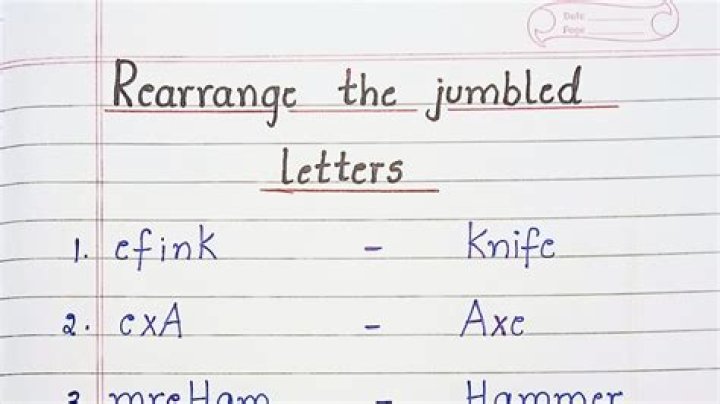 Date
Page
Rearrange the jumbled
letters
1. efink - Knife
2. exA - Axe
3 mreHam - Hammer